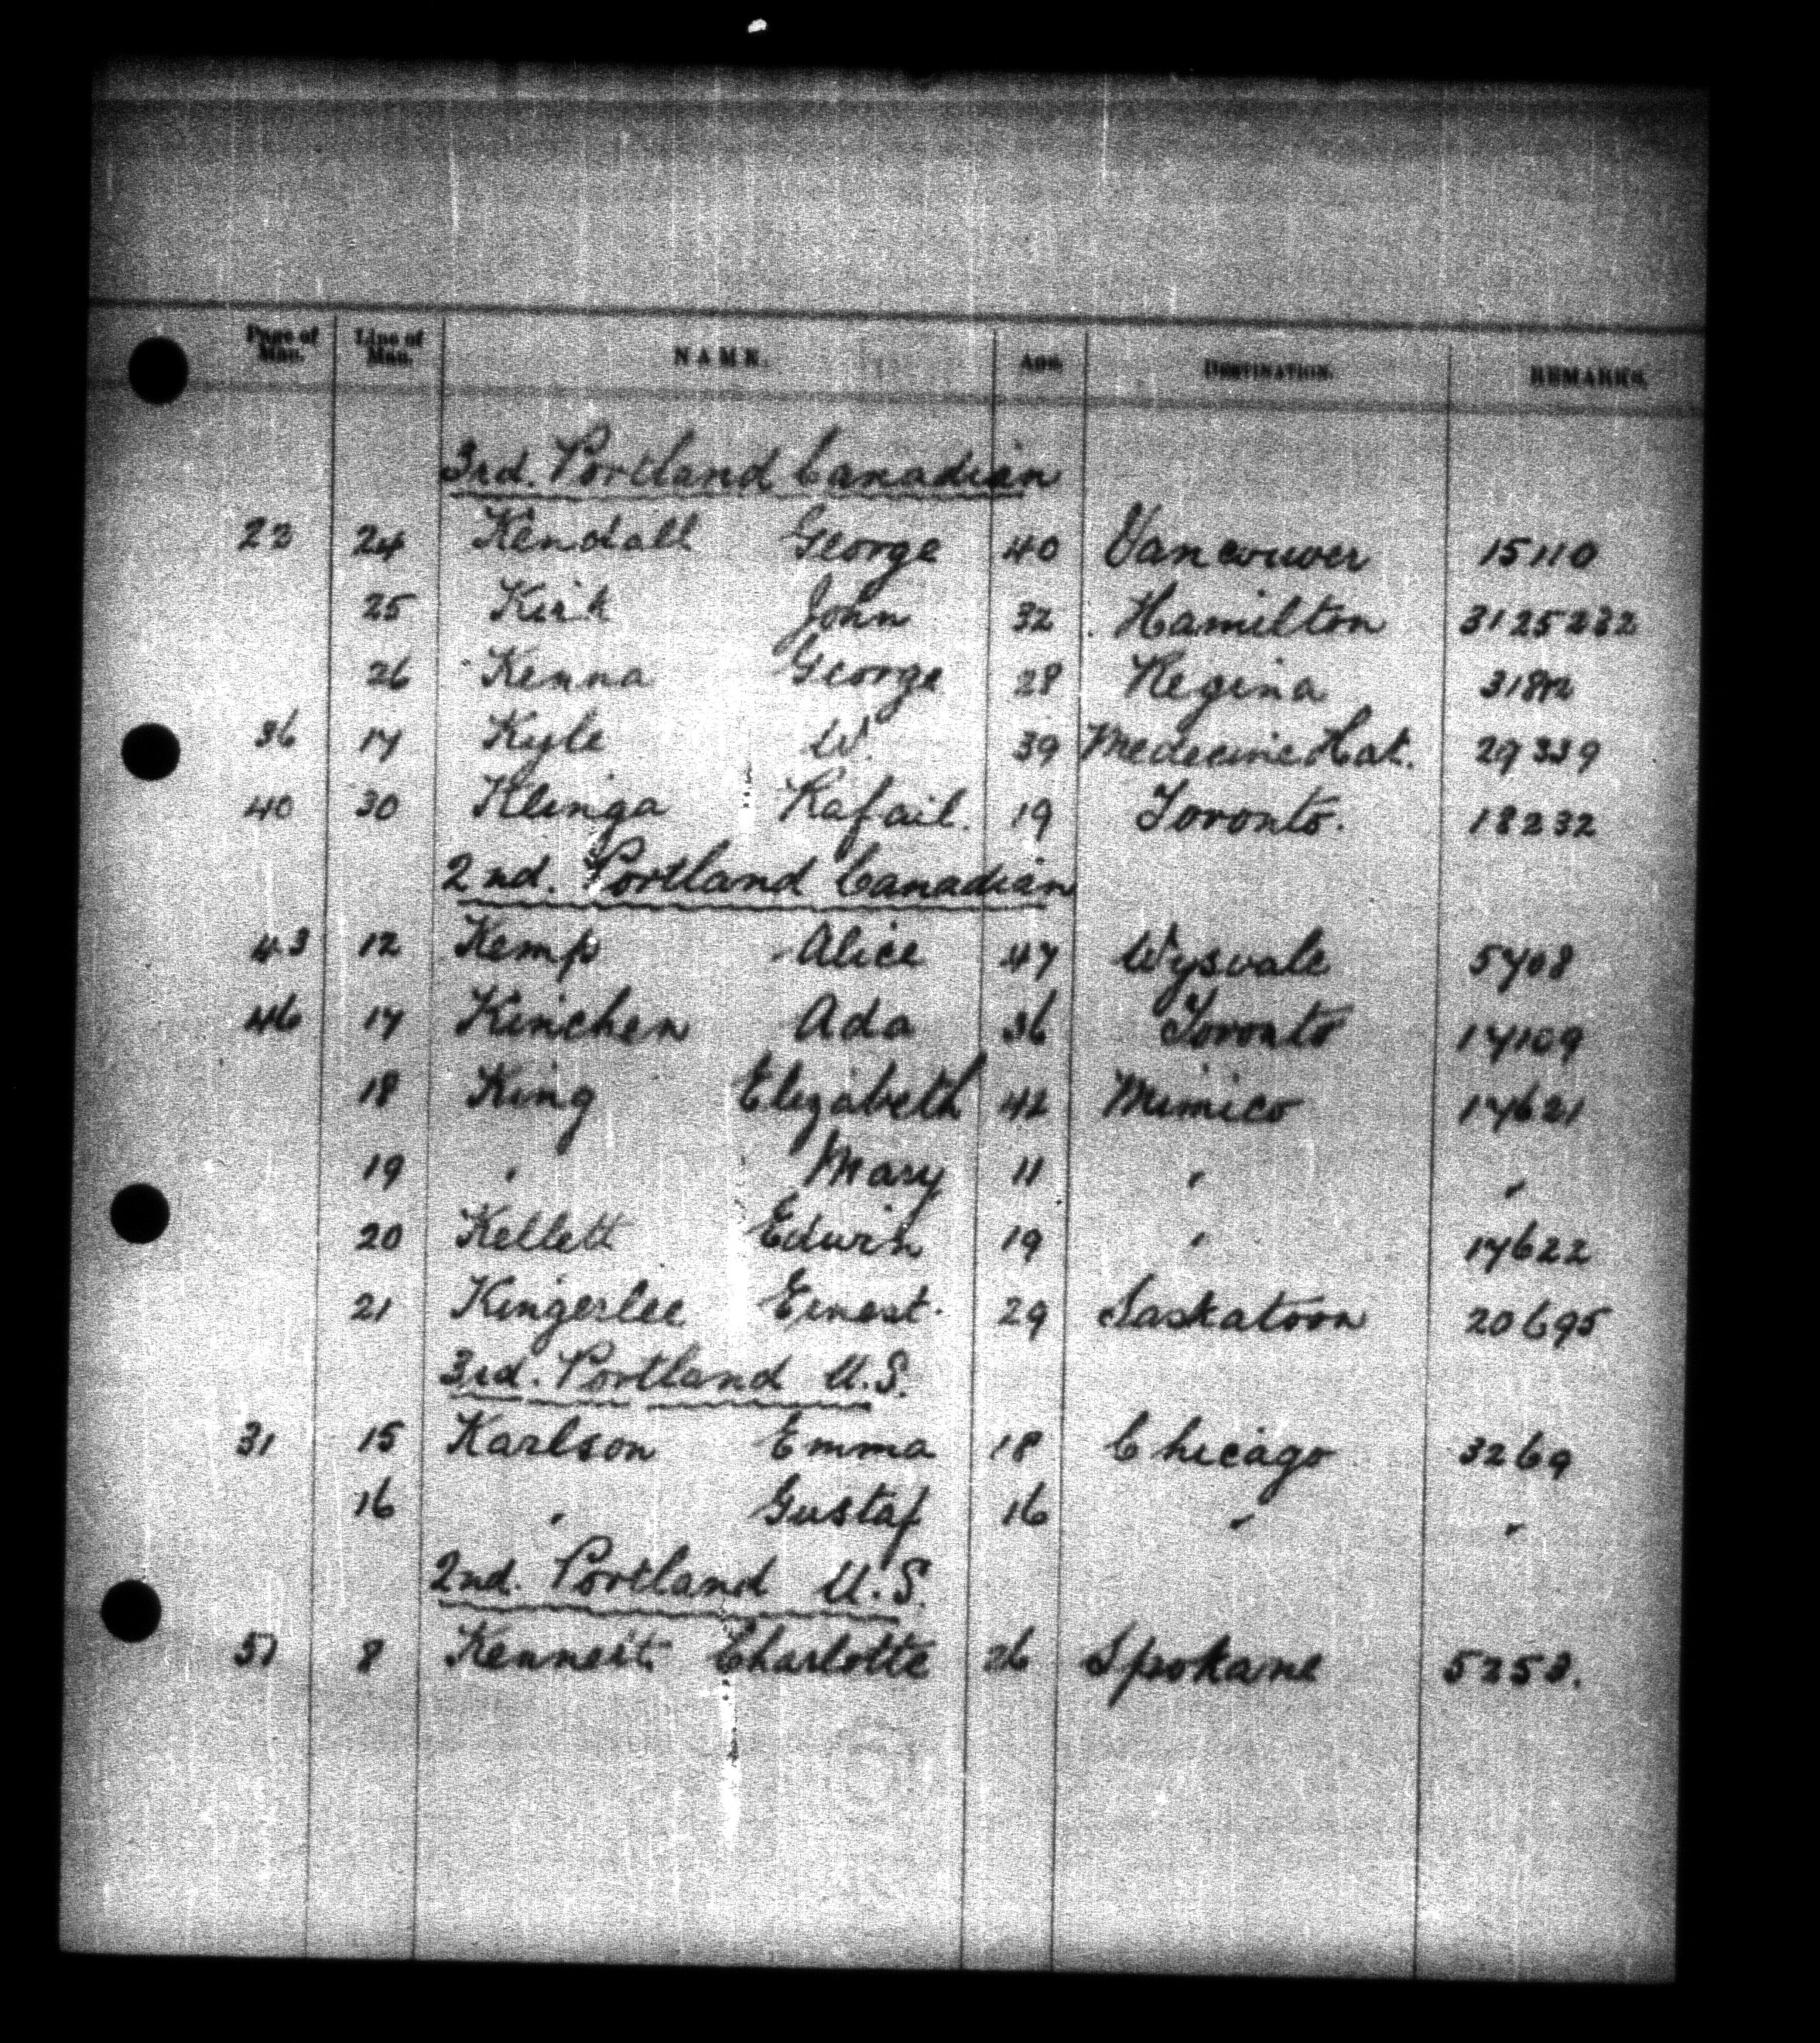 Page of Man. Line of Man. NAME. AGE. DESTINATION. REMARKS.
3rd. Portland Canadian
22 24 Kendall George 40 Vancouver 15110
25 Kirk John 32 Hamilton 3125232
26 Kenna George 28 Regina
36 17 Kyle W. 39 Medecine Hat. 29339
40 30 Klinga Rafail. 19 Toronto. 18232
2nd. Portland Canadian
43 12 Kemp Alice 47 Wysvale 5708
46 17 Kinchen Ada 36 Toronto 17109
18 King Elizabeth 42 Mimico 17621
19 " Mary 11 " "
20 Kellett Edwin 19 " 17622
21 Kingerlee Ernest. 29 Saskatoon 20695
3rd. Portland U.S.
31 15 Karlson Emma 18 Chicago 3269
16 " Gustaf 16 " "
2nd. Portland U.S.
51 8 Charlotte 26 Spokane 5253.